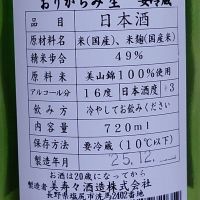 おりがらみ生 要冷蔵
品目 日本酒
原材料名 米(国産)、米麹(国産米)
精米歩合 49%
原料米 美山錦100%使用
アルコール分 16度 日本酒度 +3
飲み方 冷やしてお飲みください
内容量 720ml
保存方法 要冷蔵(10℃以下)
製造年月 25.12.
お酒は20歳になってから
製造者 美寿々酒造株式会社
長野県塩尻市洗馬2402番地